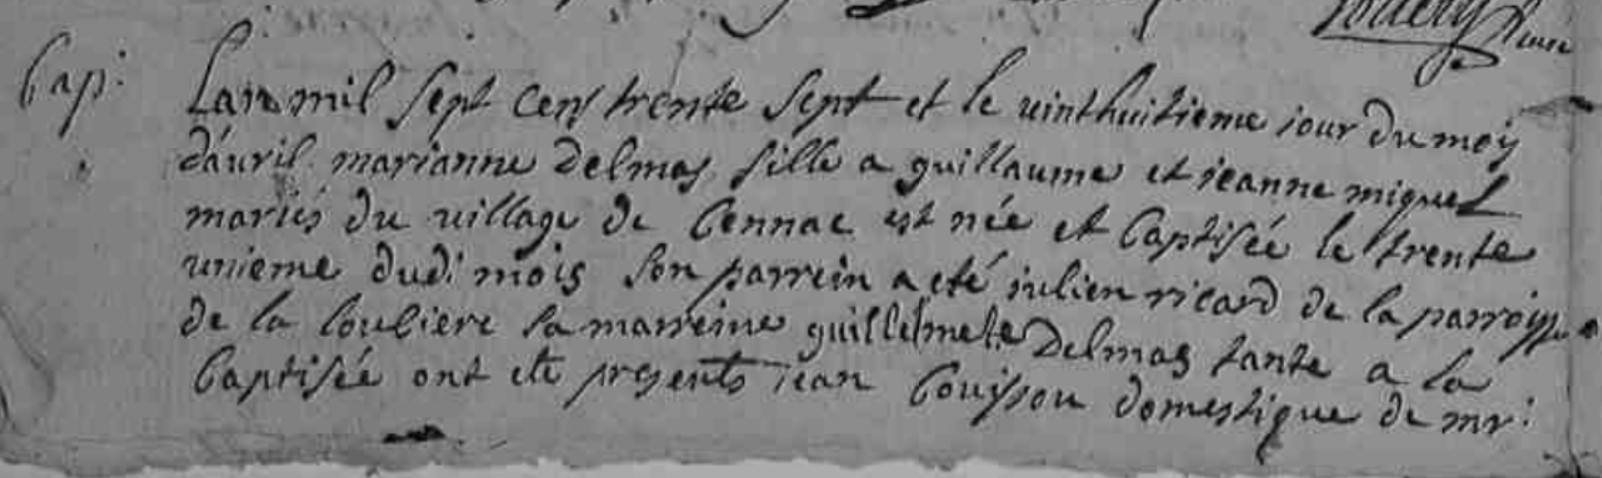 Bap:
Lan mil sept cens trente sept et le uinthuitieme iour du mois
d'auril marianne Delmas fille a guillaume et jeanne miquel
mariés du uillage de Cennac est née et baptisée le trente
unieme dudi mois son parrein a eté iulien ricard de la parroisse
de la loubiere sa marreine guillelmete Delmas tante a la
baptisée ont ete presents iean Couysson domestique de mr: